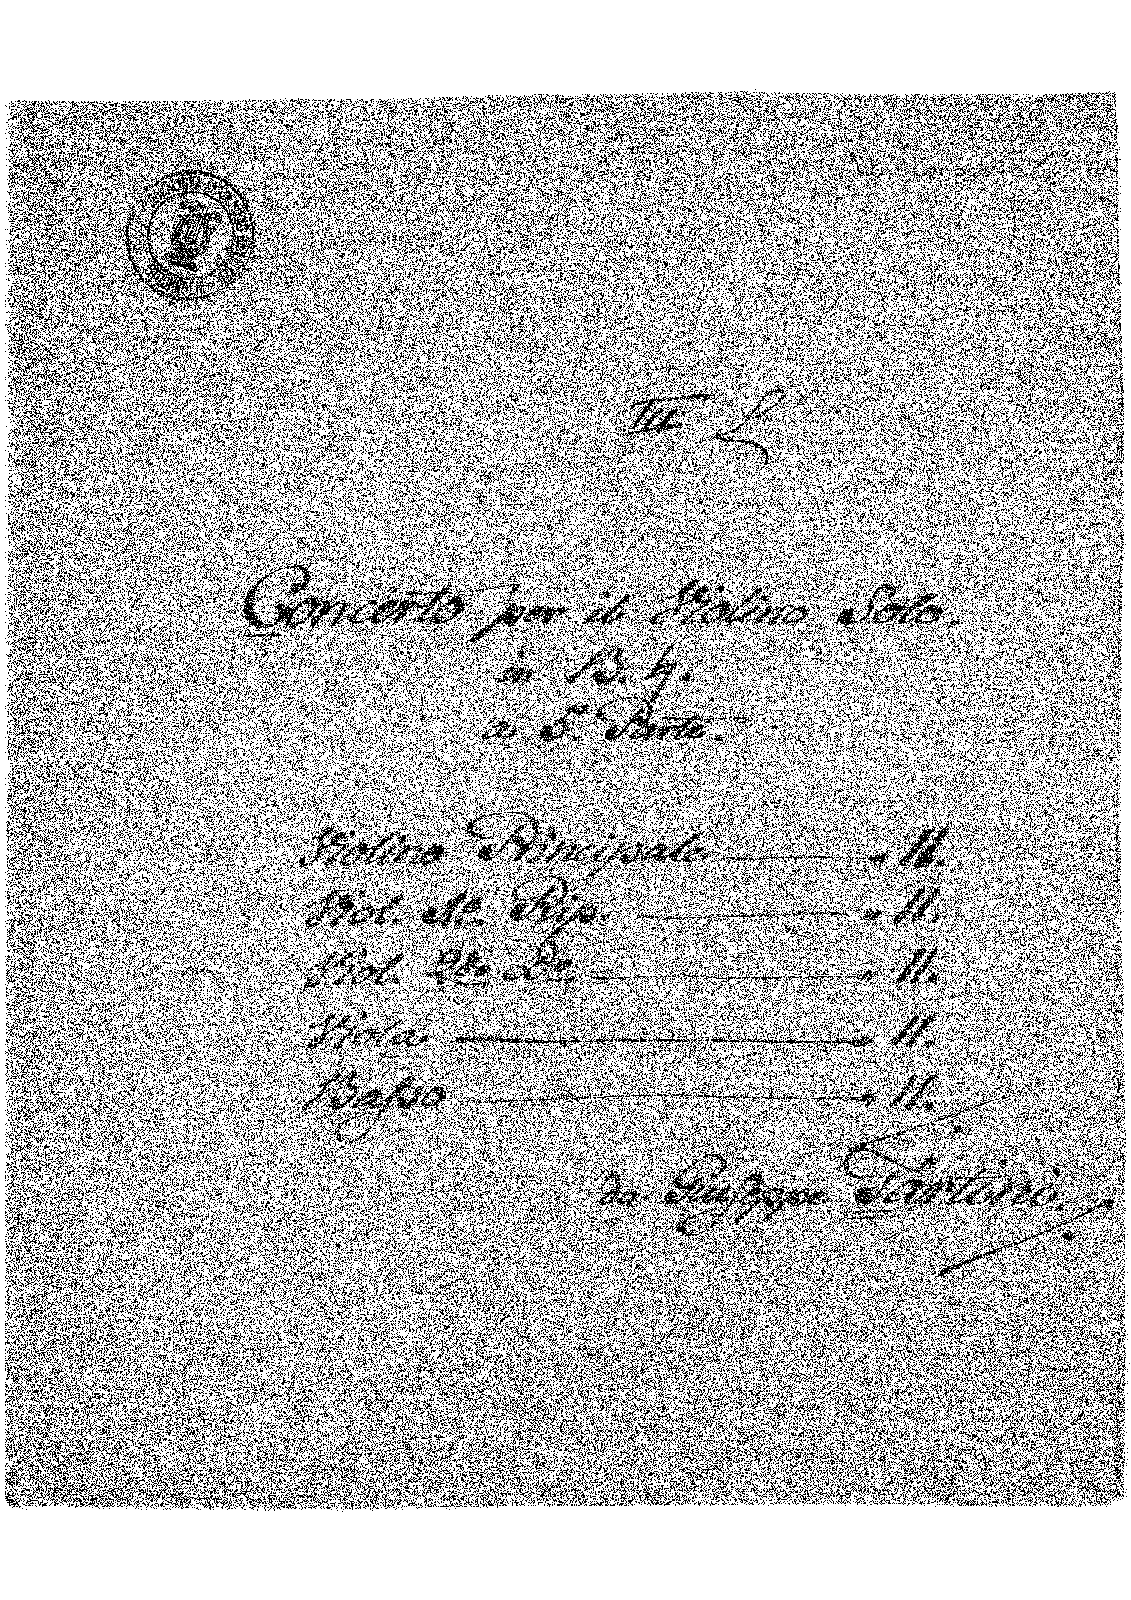 III
Concerto per il Violino Solo.
in B. ♮.
a 5. Parte.
Violino Principale 11.
Viol. 1mo. Rip. 11.
Viol. 2do 11.
Viola 11.
Basso 11.
da Tartini.